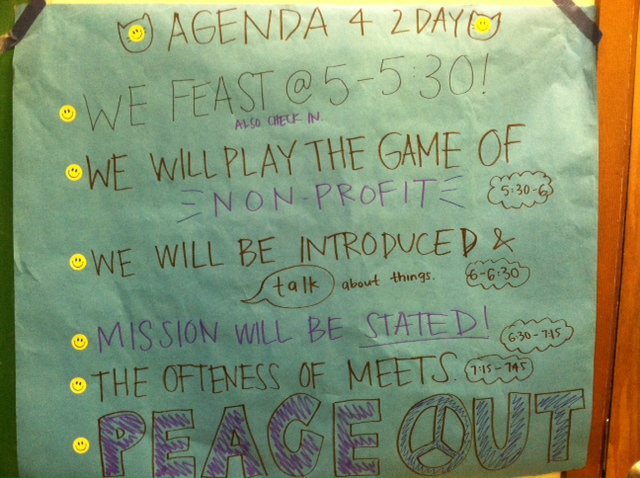 AGENDA 4 2DAY
WE FEAST @ 5-5:30!
ALSO CHECK IN
WE WILL PLAY THE GAME OF
NON-PROFIT
5:30-6
WE WILL BE INTRODUCED &
talk about things.
6-6:30
MISSION WILL BE STATED!
6:30-7:15
THE OFTENESS OF MEETS.
7:15-7:45
PEACE OUT